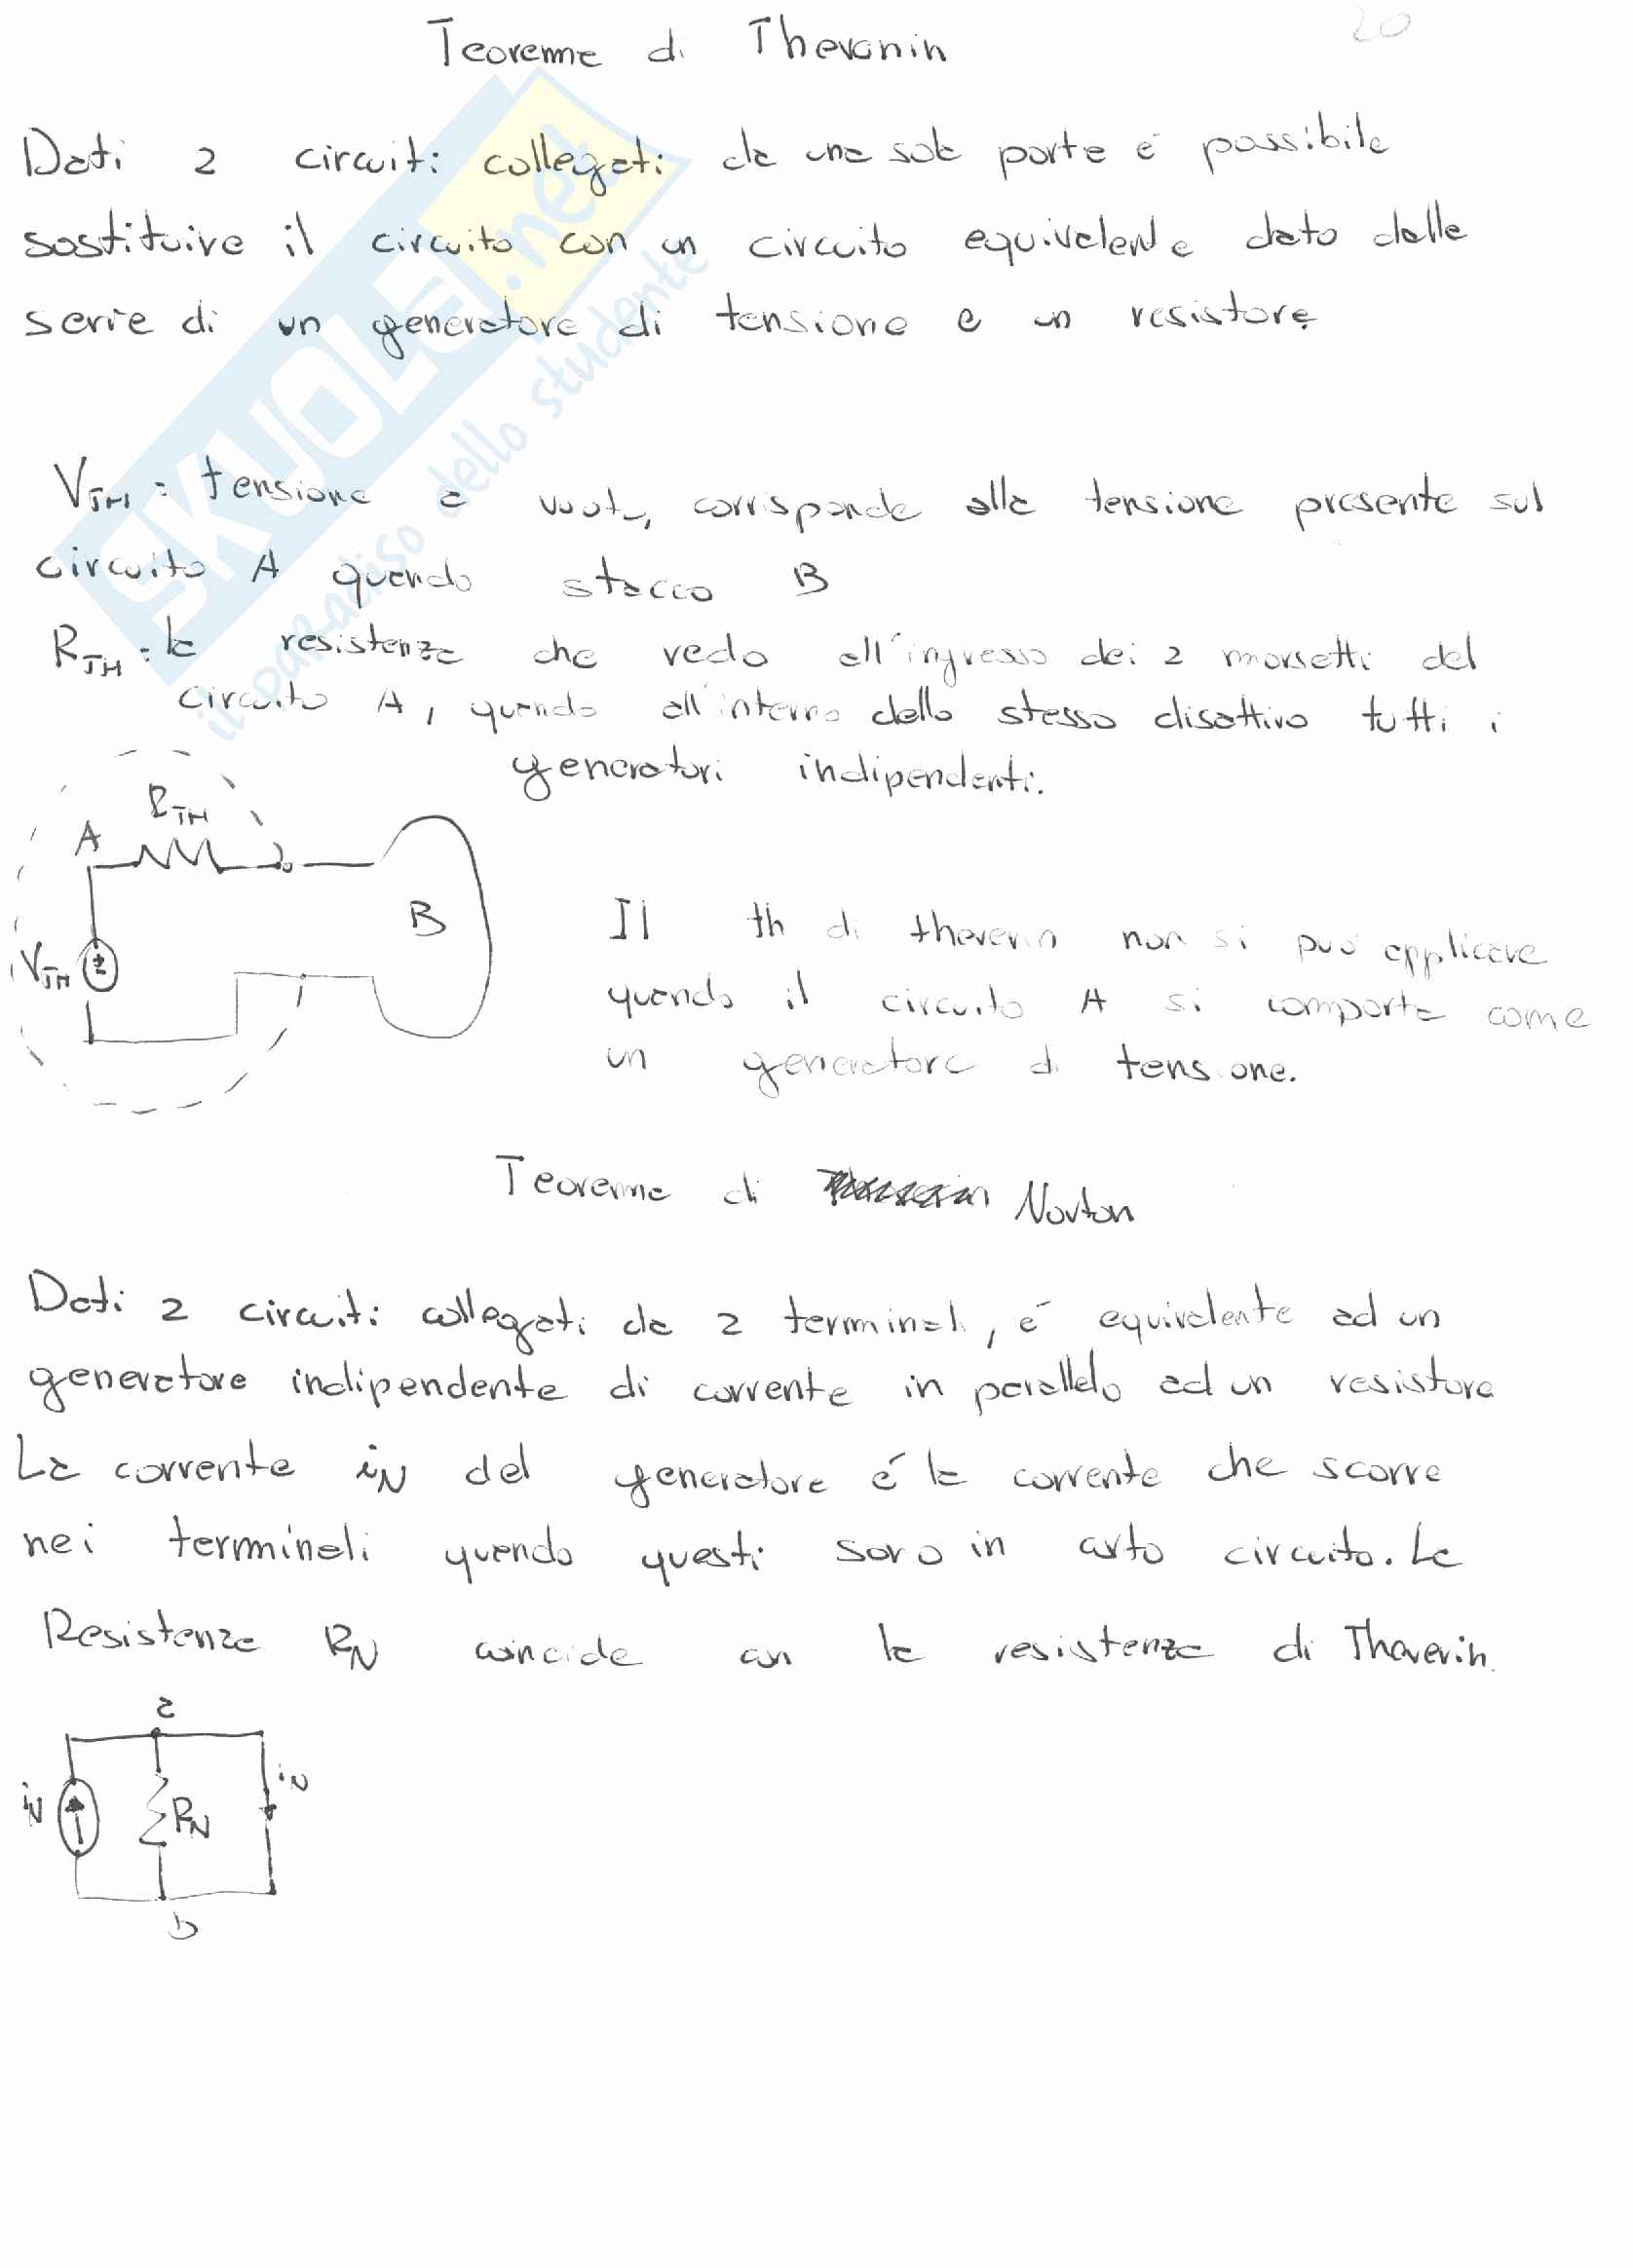 20
Teorema di Thevenin
Dati 2 circuiti collegati da una sola porte é possibile
sostituire il circuito con un circuito equivalente dato dalla
serie di un generatore di tensione e un resistore
VTH = tensione a vuoto, corrisponde alla tensione presente sul
circuito A quando stacco B
RTH = la resistenza che vedo all'ingresso dei 2 morsetti del
circuito A, quando all'interno dello stesso disattivo tutti i
generatori indipendenti.
RTH
A
B
VTH
Il th di thevenin non si puó applicare
quando il circuito A si comporta come
un generatore di tensione.
Teorema di Norton
Dati 2 circuiti collegati da 2 terminali, é equivalente ad un
generatore indipendente di corrente in parallelo ad un resistore
La corrente iN del generatore é la corrente che scorre
nei terminali quando questi sono in corto circuito. La
Resistenza RN coincide con la resistenza di Thevenin.
a
iN
RN
iN
b
SKUOLA.net
il paradiso dello studente